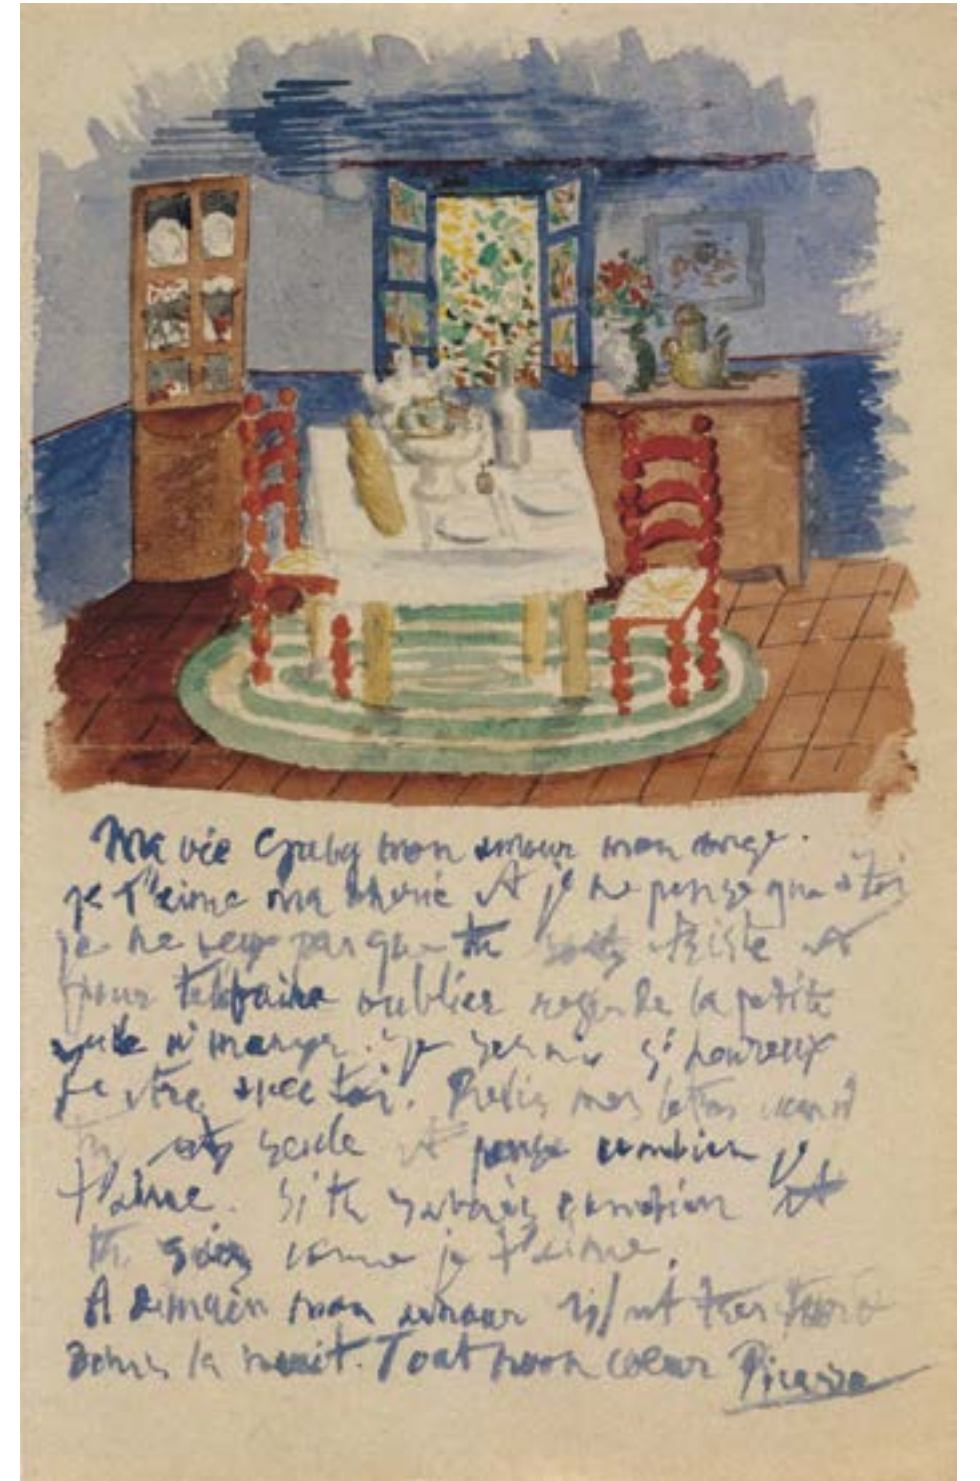 Ma vie Gaby mon amour mon ange.
je t'aime ma cherie et je ne pense qua toi
je ne veux pas que tu sois triste et
pour te faire oublier regarde la petite
salle a manger. je serais si heureux
d'etre avec toi. Relis mes letres quand
tu es seule et pense combien je
t'aime. Si tu savais combien et
tu sais comme je t'aime.
A demain mon amour il est tres tard
dans la nuit. Tout mon coeur Picasso